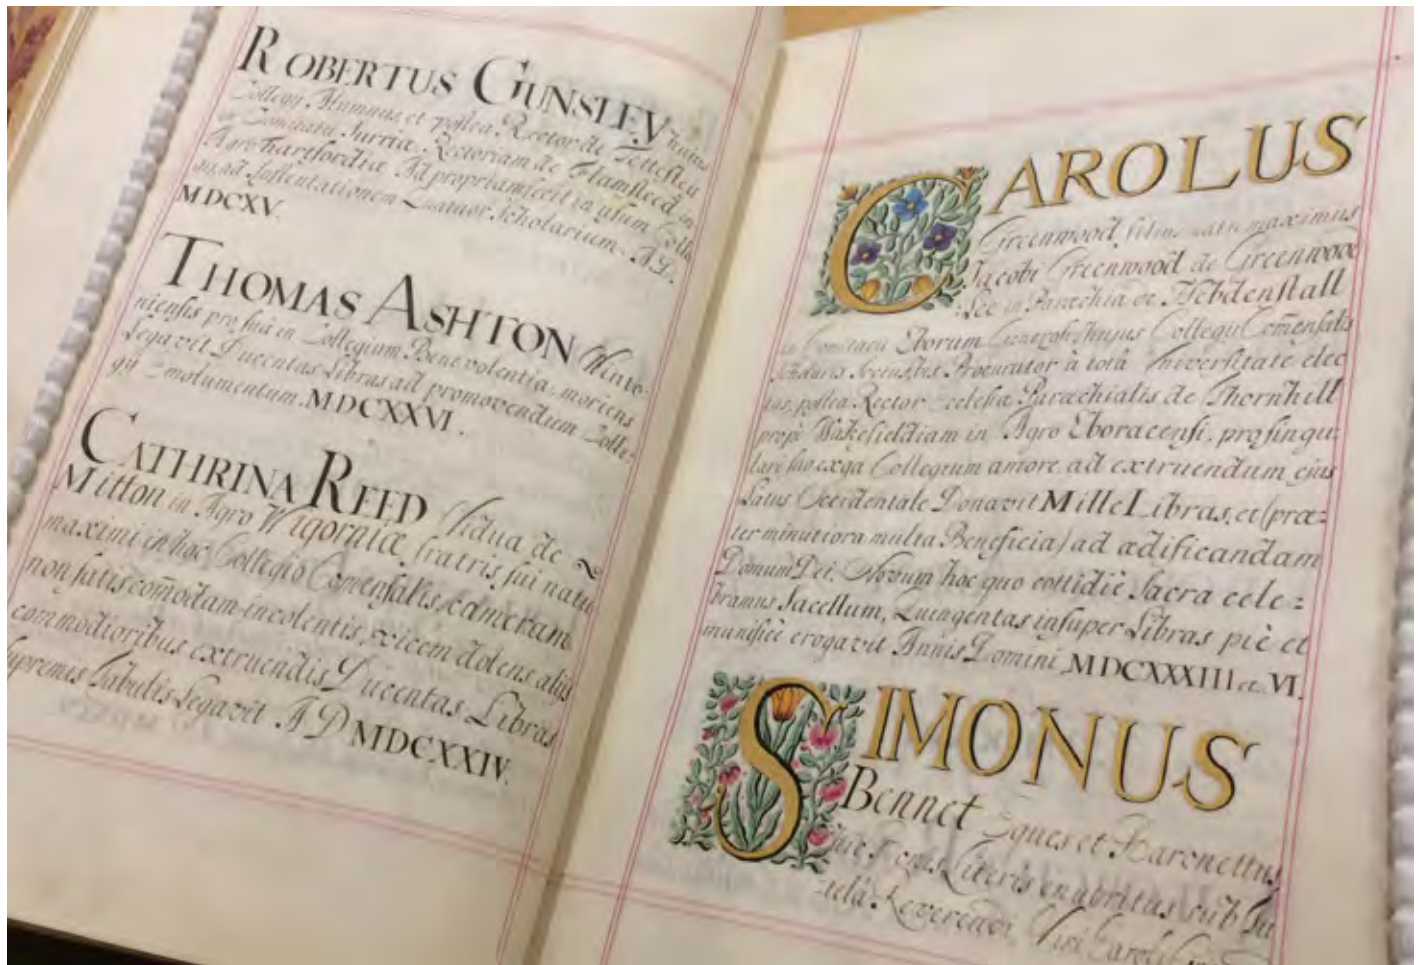 ROBERTUS GUNSLEY hujus
Collegij Alumnus et postea Rector de Tettesley
in Comitatu Surriæ Rectoriam de Flamsteed in
Agro hartfordiæ Ad propriam fecit in usum Colle
ad Sustentationem Quatuor Scholarium. A.D.
MDCXV.
THOMAS ASHTON Winto-
niensis pro sua in Collegium Benevolentia, moriens
Legavit Ducentas Libras ad promovendum Colle:
gij Emolumentum. MDCXXVI.
CATHRINA REED Vidua de ~
Mitton in Agro Wigorniæ, fratris sui natu
maximi in hoc Collegio Comensalis, cameram
non satis comodam incolentis, vicem dolens alijs
commodioribus extruendis Ducentas Libras
supremis Tabulis Legavit A D MDCXXIV.
CAROLUS
Greenwood filius natu maximus
Jacobi Greenwood de Greenwood
Lee in Parœchia de Hebdenstall
in Comitatu Eborum hujus Collegij Comensalis
Socius, bis Procurator à totâ Universitate elec
tus, postea Rector Ecclesiæ Parœchialis de Thornhill
propè Wakefieldiam in Agro Eboracensi, pro singu:
lari suo erga Collegium amore, ad extruendum ejus
Latus Occidentale Donavit Mille Libras, et (præ:
ter minutiora multa Beneficia) ad ædificandam
Domum Dei, Novum hoc quo cottidiè Sacra cele:
bramus Sacellum, Quingentas insuper Libras piè et
munificè erogavit Annis Domini MDCXXXIII et VI.
SIMONUS
Bennet Eques et Baronettus
hic bonis Literis enutritus, sub Tu
telâ Reverendi Viri Caroli